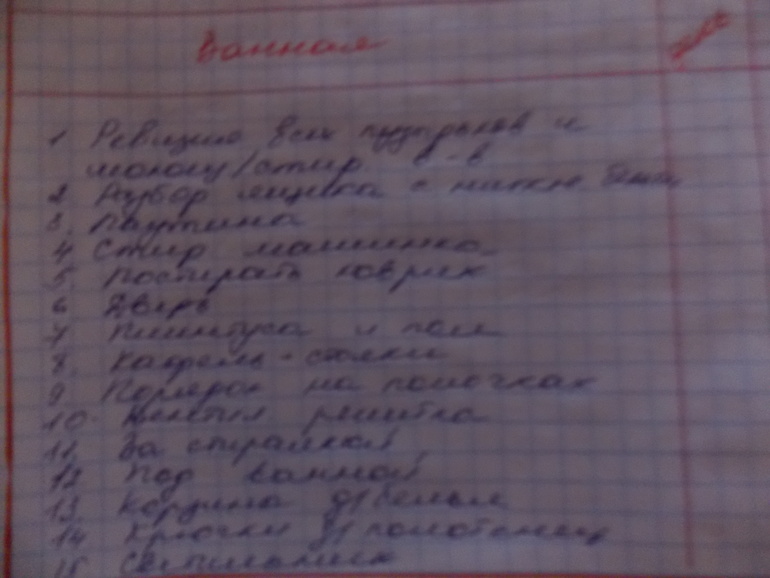 Ванная
1 Ревизия всех пузырьков и
моющ/стир. в-в
2 Разбор ящика с нижн.
3. Паутина
4 Стир машинка
5. Постирать коврик
6 Дверь
7 Плинтуса и пол
8. Кафель-стенки
9. Порядок на полочках
10. Вентил решётка
11. За стиралкой
12 Под ванной
13 Корзина д/белья
14 Крючки д/полотенец
15 Светильник